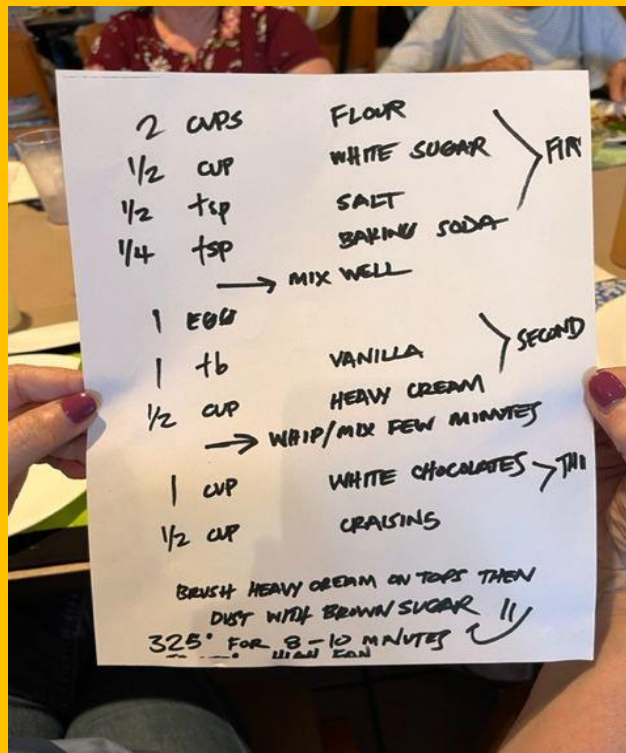 2 CUPS FLOUR
1/2 CUP WHITE SUGAR
1/2 tsp SALT
1/4 tsp BAKING SODA
FIR
→ MIX WELL
1 EGG
1 tb VANILLA
1/2 CUP HEAVY CREAM
SECOND
→ WHIP/MIX FEW MINUTES
1 CUP WHITE CHOCOLATES
THI
1/2 CUP CRAISINS
BRUSH HEAVY CREAM ON TOPS THEN
DUST WITH BROWN SUGAR !!
325° FOR 8-10 MINUTES
HIGH FAN